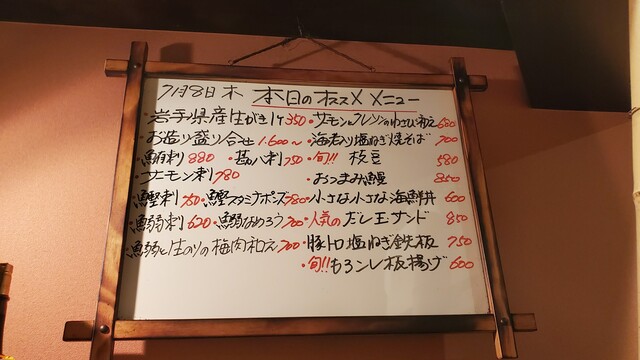 7月8日 木 本日のオススメ メニュー
・岩手県産生がき1ケ350
・お造り盛り合せ 1.600〜
・鮪刺 880 ・勘八刺 750
・サーモン刺 780
・鰹刺 750 ・鰹スタミナポン酢 780
・鰯刺 620 ・鰯なめろう 700
・鰯と生のりの梅肉和え 700
・サーモンとクレソンのわさび和え 680
・海老入り塩ねぎ焼そば 700
・旬!! 枝豆 580
・おつまみ鰻 850
・小さな小さな海鮮丼 600
・人気の だし玉サンド 850
・豚トロ塩ねぎ鉄板 750
・旬!! もろこし板揚げ 600